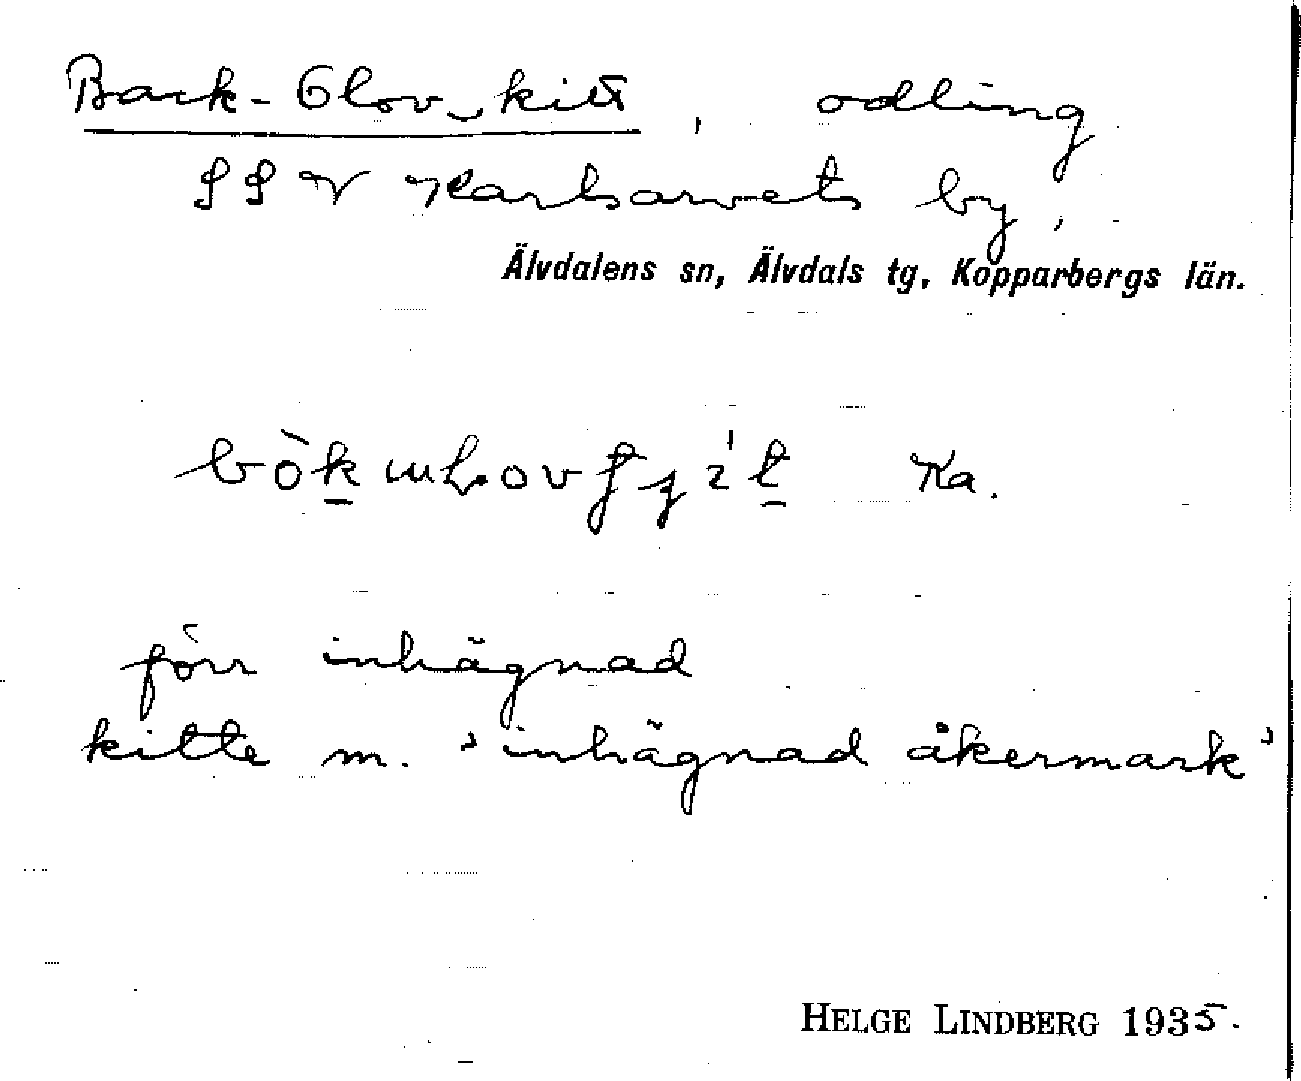 Back-Olov‿kitt, odling
SSV Karlsarvets by,
Älvdalens sn, Älvdals tg, Kopparbergs län.
Ka.
förr inhägnad
kitte m. 'inhägnad åkermark'
HELGE LINDBERG 1935.